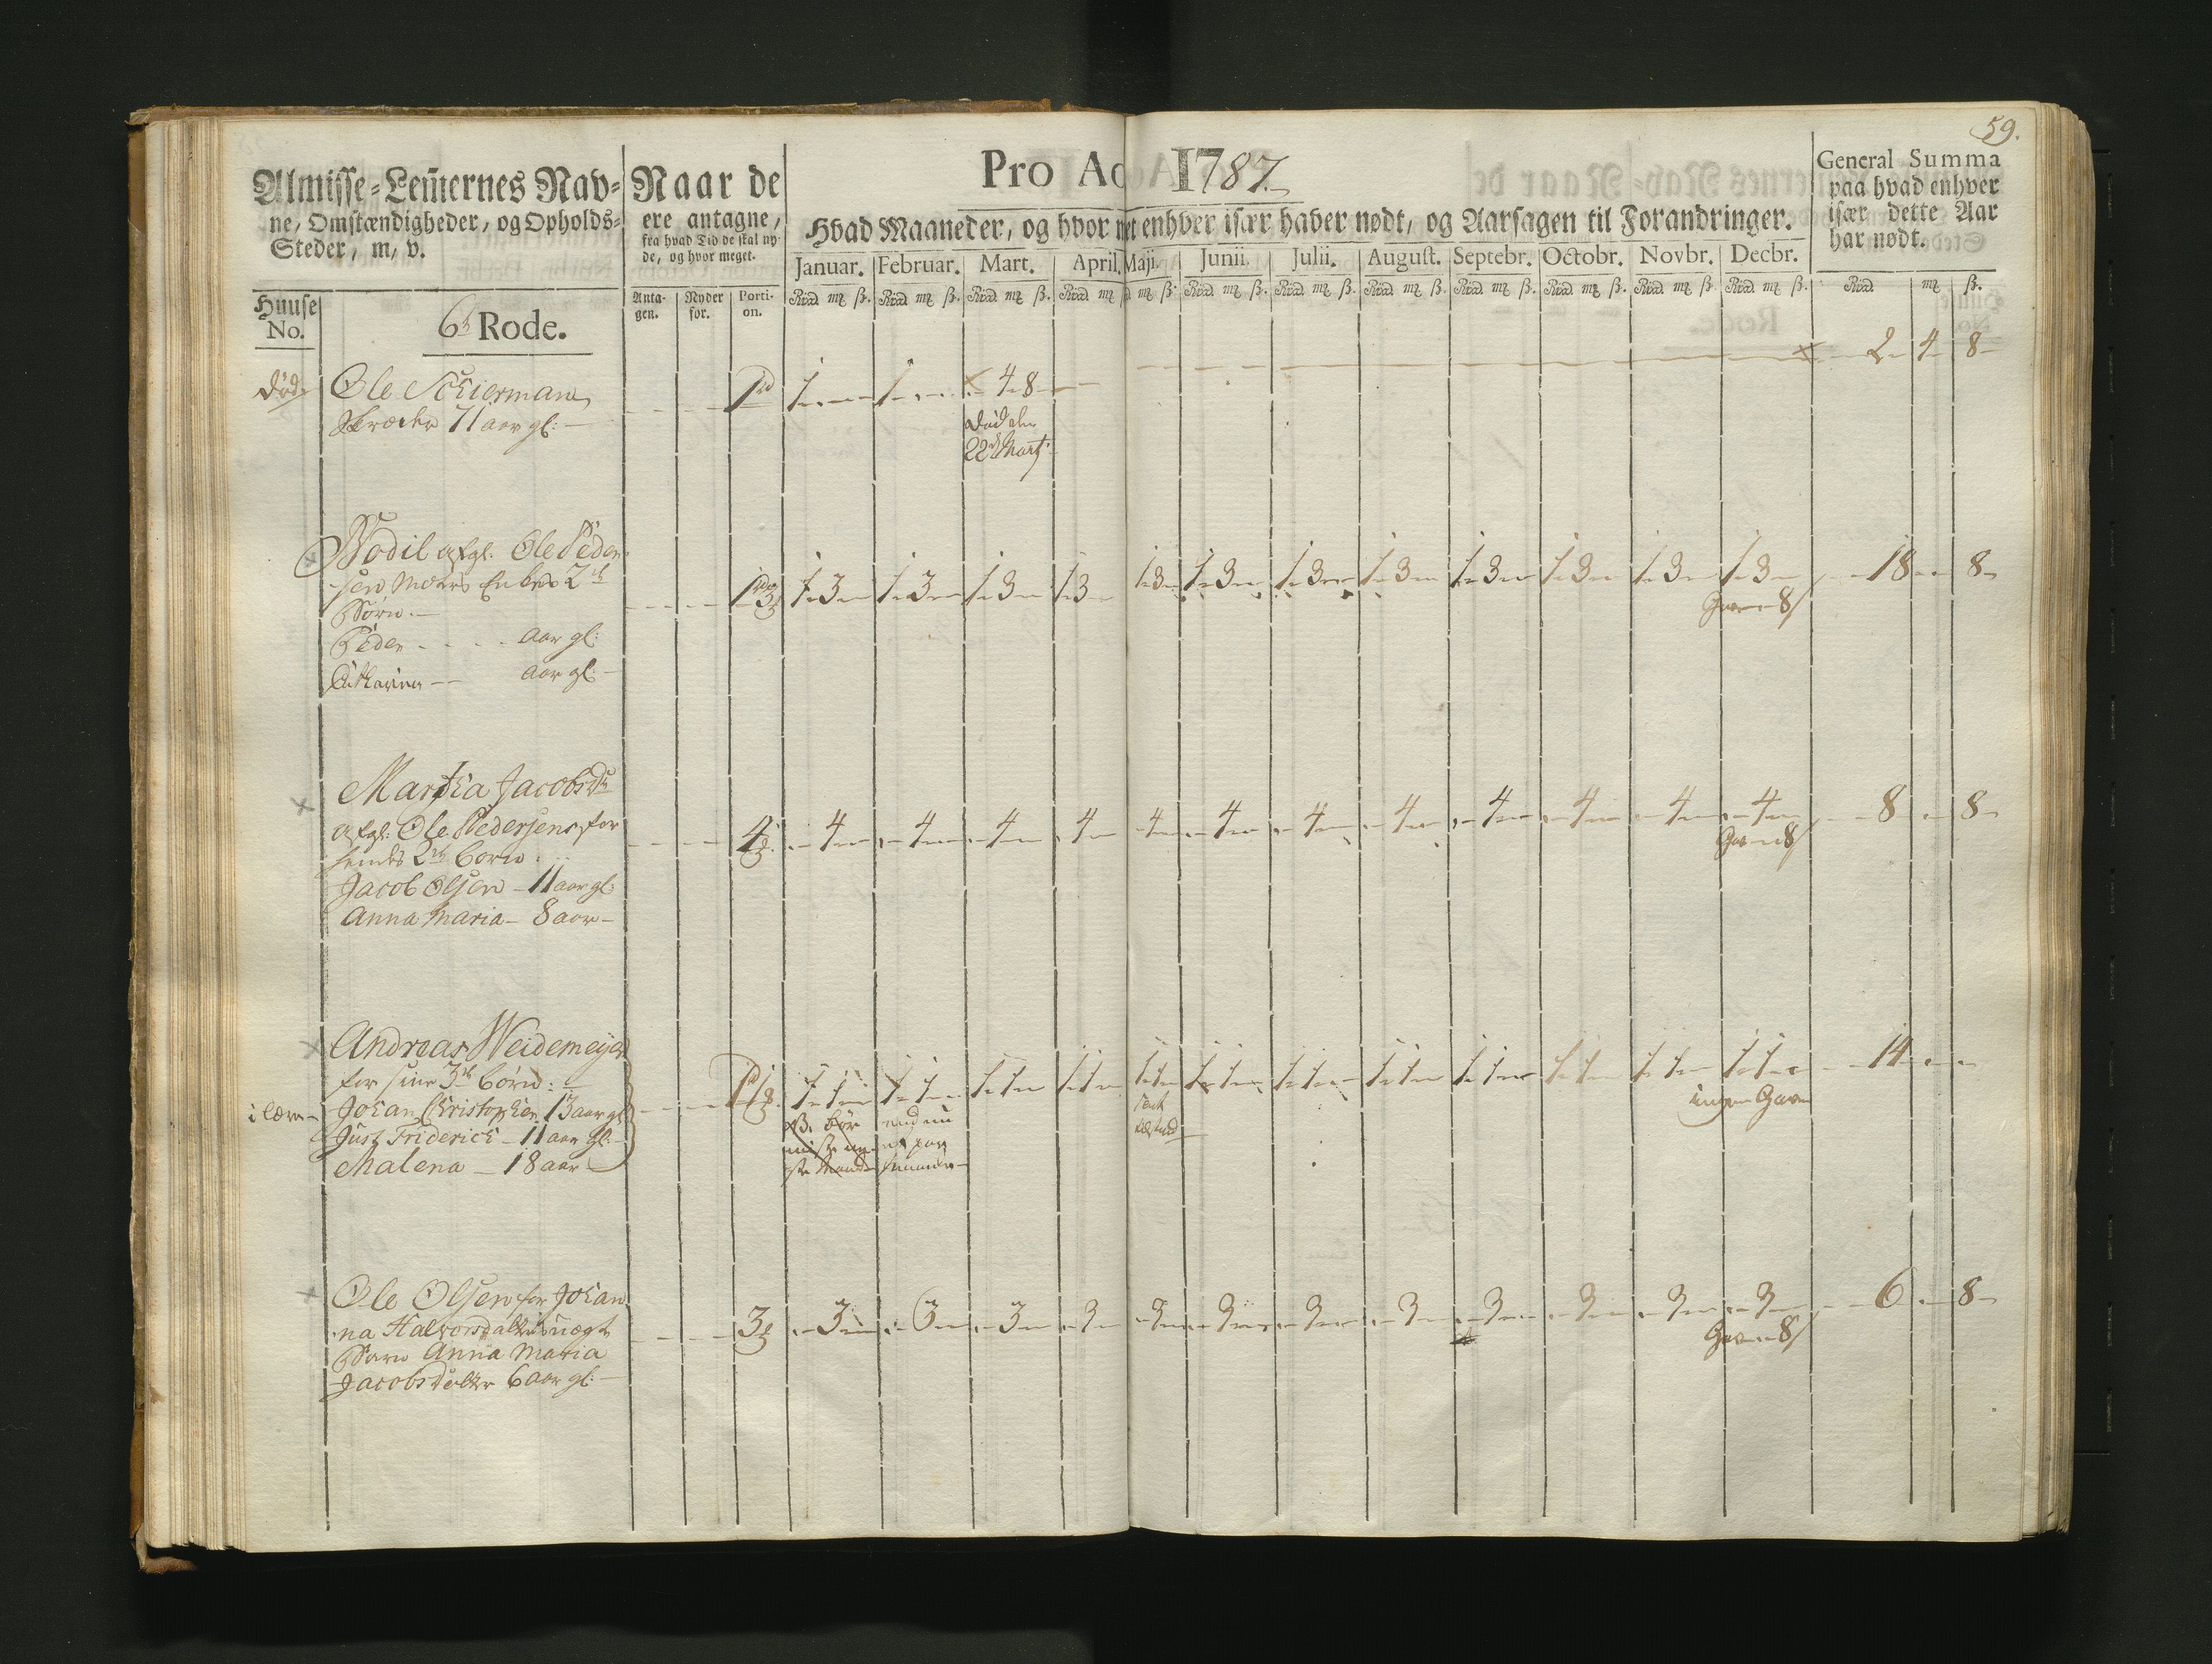 59.
Almisse-Lem̃ernes Nav-
ne, Omstændigheder, og Opholds-
Steder, m, v.
Naar de
ere antagne,
fra hvad Tid de skal ny-
de, og hvor meget.
Pro Ao 1787.
Hvad Maaneder, og hvor met enhver især haver nødt, og Aarsagen til Forandringer.
General Summa
paa hvad enhver
især dette Aar
har nødt.
Januar. Februar. Mart. April. Maji. Junii. Julii. August. Septebr. Octobr. Novbr. Decbr.
Huuse No.
6te Rode.
Anta-gen. Nyder for. Porti-on.
Rixd mk ß. Rixd mk ß. Rixd mk ß. Rixd mk ß. Rixd mk ß. Rixd mk ß. Rixd mk ß. Rixd mk ß. Rixd mk ß. Rixd mk ß. Rixd mk ß. Rixd mk ß. mk ß.
død Ole Schierman 1rd 1 1 4 8 2 4 8
Skræder 71 aar gl:
død den
22d Martj
Bodil afgl. Ole Peder-
sen Enke 2de 1 3 1 3 1 3 1 3 1 3 1 3 1 3 1 3 1 3 1 3 1 3 1 3 1 3 18 8
Børn Gave 8/
Peder aar gl:
Catharina aar gl:
Martha Jacobsdr
afgl: Ole Pedersens for 4 4 4 4 4 4 4 4 4 4 4 4 4 8 8
hendes 2de børn Gave 8/
Jacob Olsen 11 aar gl:
Anna Maria 8 aar
Andreas Weidemeyer
for sine 3de børn: 1 1 1 1 1 1 1 1 1 1 1 1 1 1 1 1 1 1 1 1 1 1 1 1 1 1 14
i lære Johan Christopher 13 aar gl ingen Gave
Just Friderich 11 aar gl:
Malena 18 aar
Ole Olsen for Johan
na Halvorsdatters uægte 3 3 3 3 3 3 3 3 3 3 3 3 3 6 8
Barn Anna Maria Gave 8/
Jacobsdatter 6 aar gl: